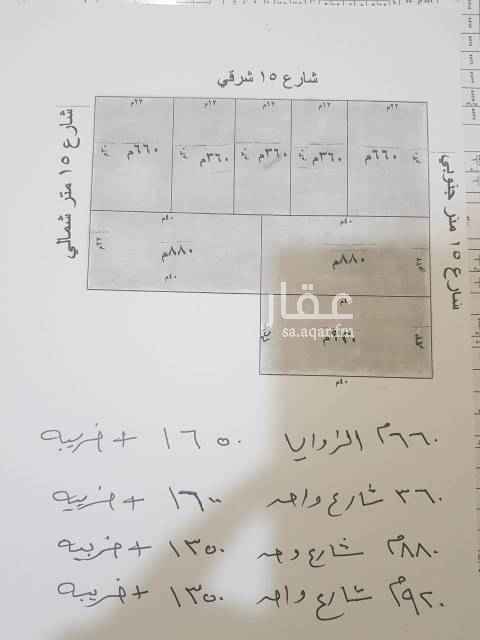 شارع ١٥ شرقي
شارع ١٥ متر شمالي
شارع ١٥ متر جنوبي
٢٢م
١٢م
١٢م
١٢م
٢٢م
٦٦٠م
٣٦٠م
٣٦٠م
٣٦٠م
٦٦٠م
٤٠م
٤٠م
٢٢م
٨٨٠م
٨٨٠م
٤٠م
عقار
sa.aqar.fm
٩٢٠م
٤٠م
٦٦٠م الزوايا ١٦٥٠ + ضريبه
٣٦٠م شارع واحد ١٦٠٠ + ضريبه
٨٨٠م شارع وحد ١٣٥٠ + ضريبه
٩٢٠م شارع واحد ١٣٥٠ + ضريبه